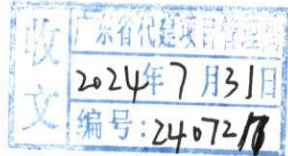 收文
广东省代建项目管理局
2024年7月31日
编号:240721